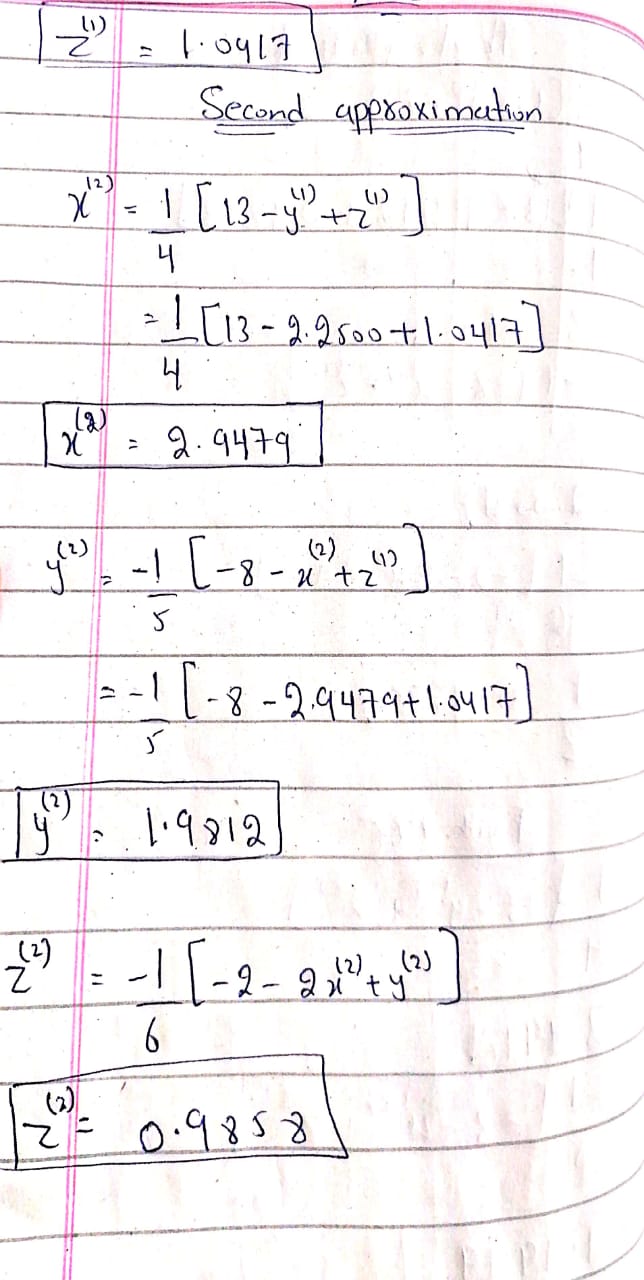 z⁽¹⁾ = 1.0417
Second approximation
x⁽²⁾ = 1/4 [13 - y⁽¹⁾ + z⁽¹⁾]
= 1/4 [13 - 2.2500 + 1.0417]
x⁽²⁾ = 2.9479
y⁽²⁾ = -1/5 [-8 - x⁽²⁾ + z⁽¹⁾]
= -1/5 [-8 - 2.9479 + 1.0417]
y⁽²⁾ = 1.9812
z⁽²⁾ = -1/6 [-2 - 2x⁽²⁾ + y⁽²⁾]
z⁽²⁾ = 0.9858